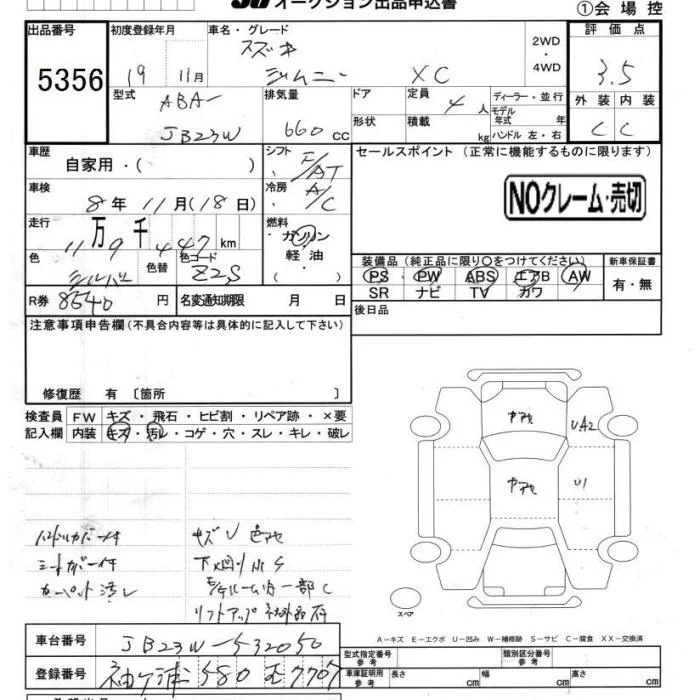 オークション出品申込書
①会場控
出品番号
5356
初度登録年月
19 11月
車名・グレード
スズキ
ジムニー XC
2WD
・
4WD
評価点
3.5
型式
ABA-
JB23W
排気量
660 cc
ドア
形状
定員
4 人
積載
kg
ディーラー・並行
モデル
年式 年
ハンドル 左・右
外装 内装
C C
車歴
自家用・( )
シフト
F/AT
セールスポイント (正常に機能するものに限ります)
NOクレーム・売切
車検
8年 11月(18日)
冷房
A/C
走行
11万9千447km
燃料
・ガソリン
軽油
・( )
色
シルバー
色替
色コード
Z2S
装備品 (純正品に限り〇をつけてください)
PS PW ABS エアB AW
SR ナビ TV カワ
新車保証書
有・無
R券 8540 円
名変通知期限 月 日
後日品
注意事項申告欄(不具合内容等は具体的に記入して下さい)
修復歴 有 〔箇所 〕
検査員
記入欄
FW キズ・飛石・ヒビ割・リペア跡・×要
内装 キズ・汚レ・コゲ・穴・スレ・キレ・破レ
UA2
U1
ハンドルカバー付
シートカバー付
カーペット汚レ
キズU色アセ
下回りルS
リフトアップ社外品有
スペア
A-キズ E-エクボ U-凹み W-補修跡 S-サビ C-腐食 XX-交換済
車台番号 JB23W-532050
登録番号 袖ケ浦 580 む 7707
型式指定番号
参考
類別区分番号
参考
車庫証明用
参考
長さ cm 幅 cm 高さ cm